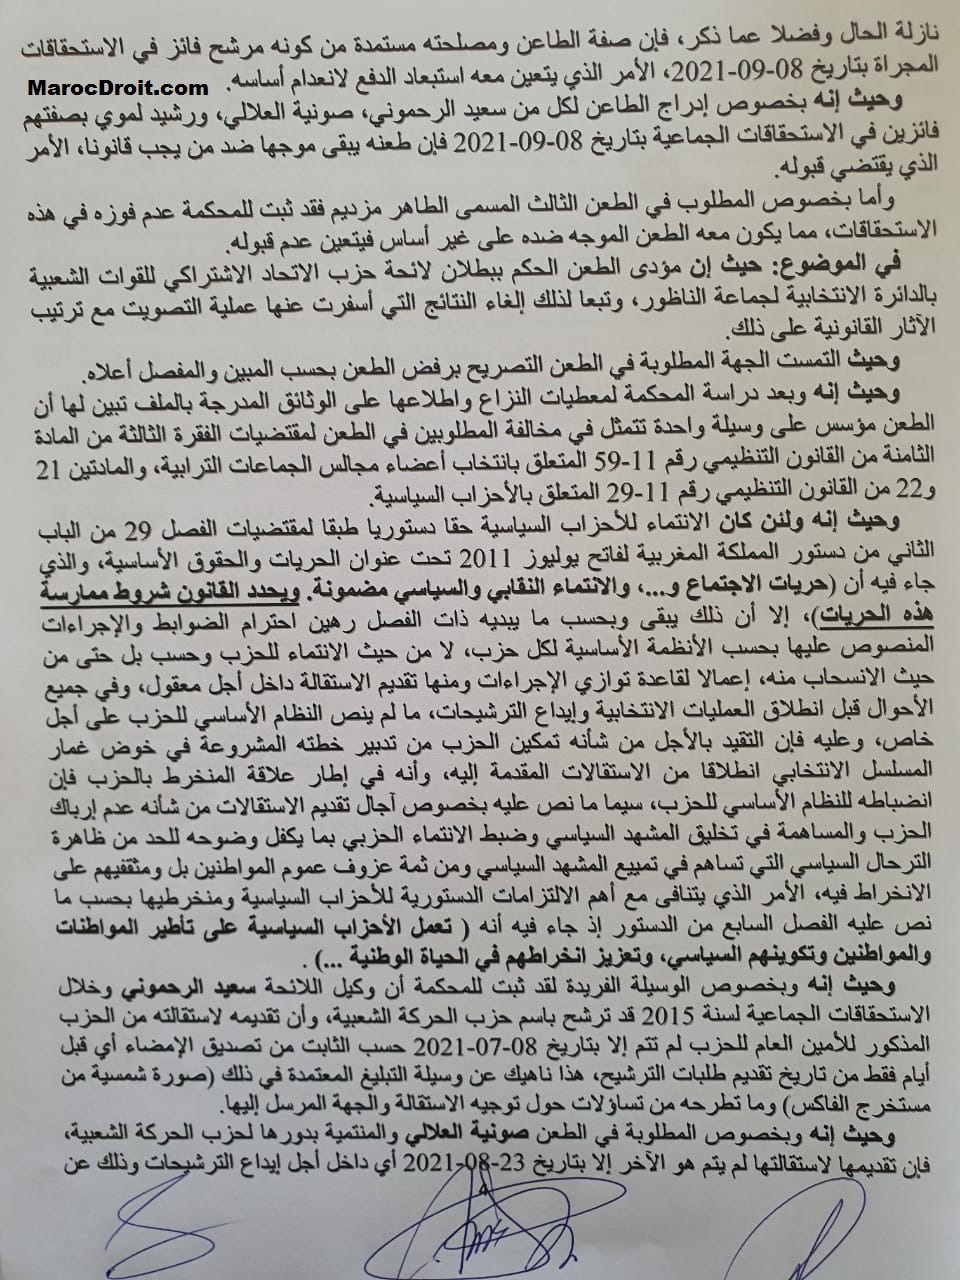 نازلة الحال وفضلا عما ذكر، فإن صفة الطاعن ومصلحته مستمدة من كونه مرشح فائز في الاستحقاقات
المجراة بتاريخ 08-09-2021، الأمر الذي يتعين معه استبعاد الدفع لانعدام أساسه.
MarocDroit.com
وحيث إنه بخصوص إدراج الطاعن لكل من سعيد الرحموني، صونية العلالي، ورشيد لموي بصفتهم
فائزين في الاستحقاقات الجماعية بتاريخ 08-09-2021 فإن طعنه يبقى موجها ضد من يجب قانونا، الأمر
الذي يقتضي قبوله.
وأما بخصوص المطلوب في الطعن الثالث المسمى الطاهر مزديم فقد ثبت للمحكمة عدم فوزه في هذه
الاستحقاقات، مما يكون معه الطعن الموجه ضده على غير أساس فيتعين عدم قبوله.
في الموضوع: حيث إن مؤدى الطعن الحكم ببطلان لائحة حزب الاتحاد الاشتراكي للقوات الشعبية
بالدائرة الانتخابية لجماعة الناظور، وتبعا لذلك إلغاء النتائج التي أسفرت عنها عملية التصويت مع ترتيب
الآثار القانونية على ذلك.
وحيث التمست الجهة المطلوبة في الطعن التصريح برفض الطعن بحسب المبين والمفصل أعلاه.
وحيث إنه وبعد دراسة المحكمة لمعطيات النزاع واطلاعها على الوثائق المدرجة بالملف تبين لها أن
الطعن مؤسس على وسيلة واحدة تتمثل في مخالفة المطلوبين في الطعن لمقتضيات الفقرة الثالثة من المادة
الثامنة من القانون التنظيمي رقم 11-59 المتعلق بانتخاب أعضاء مجالس الجماعات الترابية، والمادتين 21
و22 من القانون التنظيمي رقم 11-29 المتعلق بالأحزاب السياسية.
وحيث إنه ولئن كان الانتماء للأحزاب السياسية حقا دستوريا طبقا لمقتضيات الفصل 29 من الباب
الثاني من دستور المملكة المغربية لفاتح يوليوز 2011 تحت عنوان الحريات والحقوق الأساسية، والذي
جاء فيه أن (حريات الاجتماع و...، والانتماء النقابي والسياسي مضمونة. ويحدد القانون شروط ممارسة
هذه الحريات)، إلا أن ذلك يبقى وبحسب ما يبديه ذات الفصل رهين احترام الضوابط والإجراءات
المنصوص عليها بحسب الأنظمة الأساسية لكل حزب، لا من حيث الانتماء للحزب وحسب بل حتى من
حيث الانسحاب منه، إعمالا لقاعدة توازي الإجراءات ومنها تقديم الاستقالة داخل أجل معقول، وفي جميع
الأحوال قبل انطلاق العمليات الانتخابية وإيداع الترشيحات، ما لم ينص النظام الأساسي للحزب على أجل
خاص، وعليه فإن التقيد بالأجل من شأنه تمكين الحزب من تدبير خطته المشروعة في خوض غمار
المسلسل الانتخابي انطلاقا من الاستقالات المقدمة إليه، وأنه في إطار علاقة المنخرط بالحزب فإن
انضباطه للنظام الأساسي للحزب، سيما ما نص عليه بخصوص آجال تقديم الاستقالات من شأنه عدم إرباك
الحزب والمساهمة في تخليق المشهد السياسي وضبط الانتماء الحزبي بما يكفل وضوحه للحد من ظاهرة
الترحال السياسي التي تساهم في تمييع المشهد السياسي ومن ثمة عزوف عموم المواطنين بل ومثقفيهم على
الانخراط فيه، الأمر الذي يتنافى مع أهم الالتزامات الدستورية للأحزاب السياسية ومنخرطيها بحسب ما
نص عليه الفصل السابع من الدستور إذ جاء فيه أنه ( تعمل الأحزاب السياسية على تأطير المواطنات
والمواطنين وتكوينهم السياسي، وتعزيز انخراطهم في الحياة الوطنية ...) .
وحيث إنه وبخصوص الوسيلة الفريدة لقد ثبت للمحكمة أن وكيل اللائحة سعيد الرحموني وخلال
الاستحقاقات الجماعية لسنة 2015 قد ترشح باسم حزب الحركة الشعبية، وأن تقديمه لاستقالته من الحزب
المذكور للأمين العام للحزب لم تتم إلا بتاريخ 08-07-2021 حسب الثابت من تصديق الإمضاء أي قبل
أيام فقط من تاريخ تقديم طلبات الترشيح، هذا ناهيك عن وسيلة التبليغ المعتمدة في ذلك (صورة شمسية من
مستخرج الفاكس) وما تطرحه من تساؤلات حول توجيه الاستقالة والجهة المرسل إليها.
وحيث إنه وبخصوص المطلوبة في الطعن صونية العلالي والمنتمية بدورها لحزب الحركة الشعبية،
فإن تقديمها لاستقالتها لم يتم هو الآخر إلا بتاريخ 23-08-2021 أي داخل أجل إيداع الترشيحات وذلك عن
4